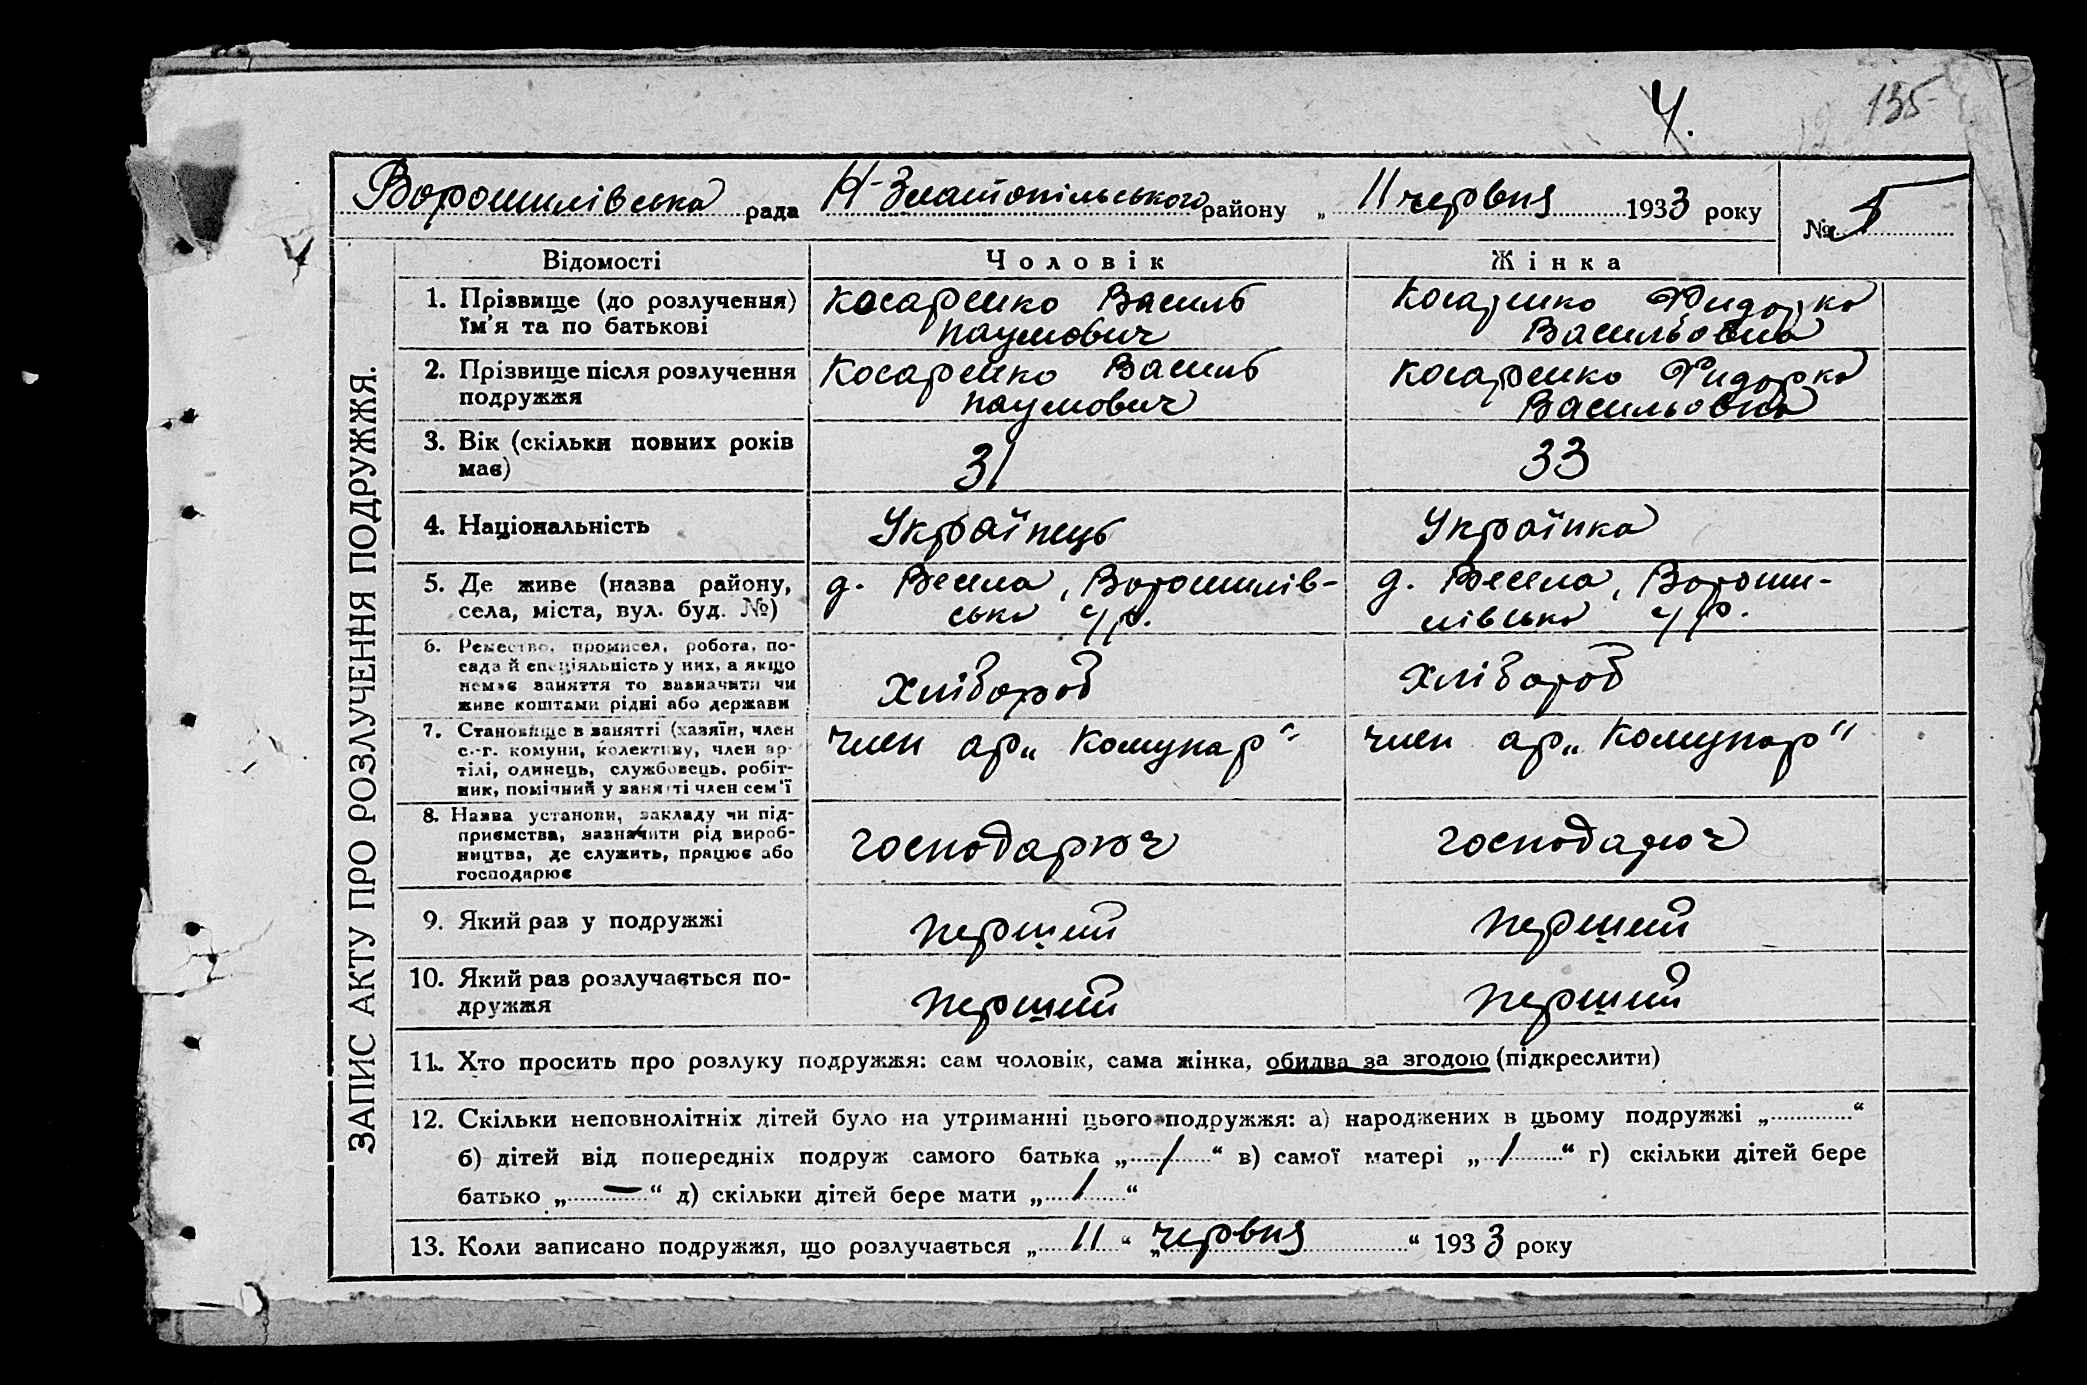 Ч.
135
Ворошилівська рада Н-Златопільського району „ 11 червня 1933 року
№ 5
ЗАПИС АКТУ ПРО РОЗЛУЧЕННЯ ПОДРУЖЖЯ.
Відомості Чоловік Жінка
1. Прізвище (до розлучення)
ім'я та по батькові
Косаренко Василь
Наумович
Косаренко Фидорка
Васильовна
2. Прізвище після розлучення
подружжя
Косаренко Василь
Наумович
Косаренко Фидорка
Васильовна
3. Вік (скільки повних років
має)
31
33
4. Національність
Українець
Українка
5. Де живе (назва району,
села, міста, вул. буд. №)
д. Весела, Ворошилів-
ська с/р.
д. Весела, Вороши-
лівська с/р.
6. Ремество, промисел, робота, по-
сада й спеціяльність у них, а якщо
немає заняття то зазначити чи
живе коштами рідні або держави
Хлібороб
Хлібороб
7. Становище в занятті (хазяїн, член
с.-г. комуни, колективу, член ар-
тілі, одинець, службовець, робіт-
ник, помічний у занятті член сем'ї
член ар „Комунар"
член ар „Комунар"
8. Назва установи, закладу чи під-
приємства, зазначити рід вироб-
ництва, де служить, працює або
господарює
господарюч
господарюч
9. Який раз у подружжі
перший
перший
10. Який раз розлучається по-
дружжя
перший
перший
11. Хто просить про розлуку подружжя: сам чоловік, сама жінка, обидва за згодою (підкреслити)
12. Скільки неповнолітніх дітей було на утриманні цього подружжя: а) народжених в цьому подружжі „..........“
б) дітей від попередніх подруж самого батька „ / “ в) самої матері „ / “ г) скільки дітей бере
батько „ — “ д) скільки дітей бере мати „ / “
13. Коли записано подружжя, що розлучається „ 11 “ „ червня “ 1933 року